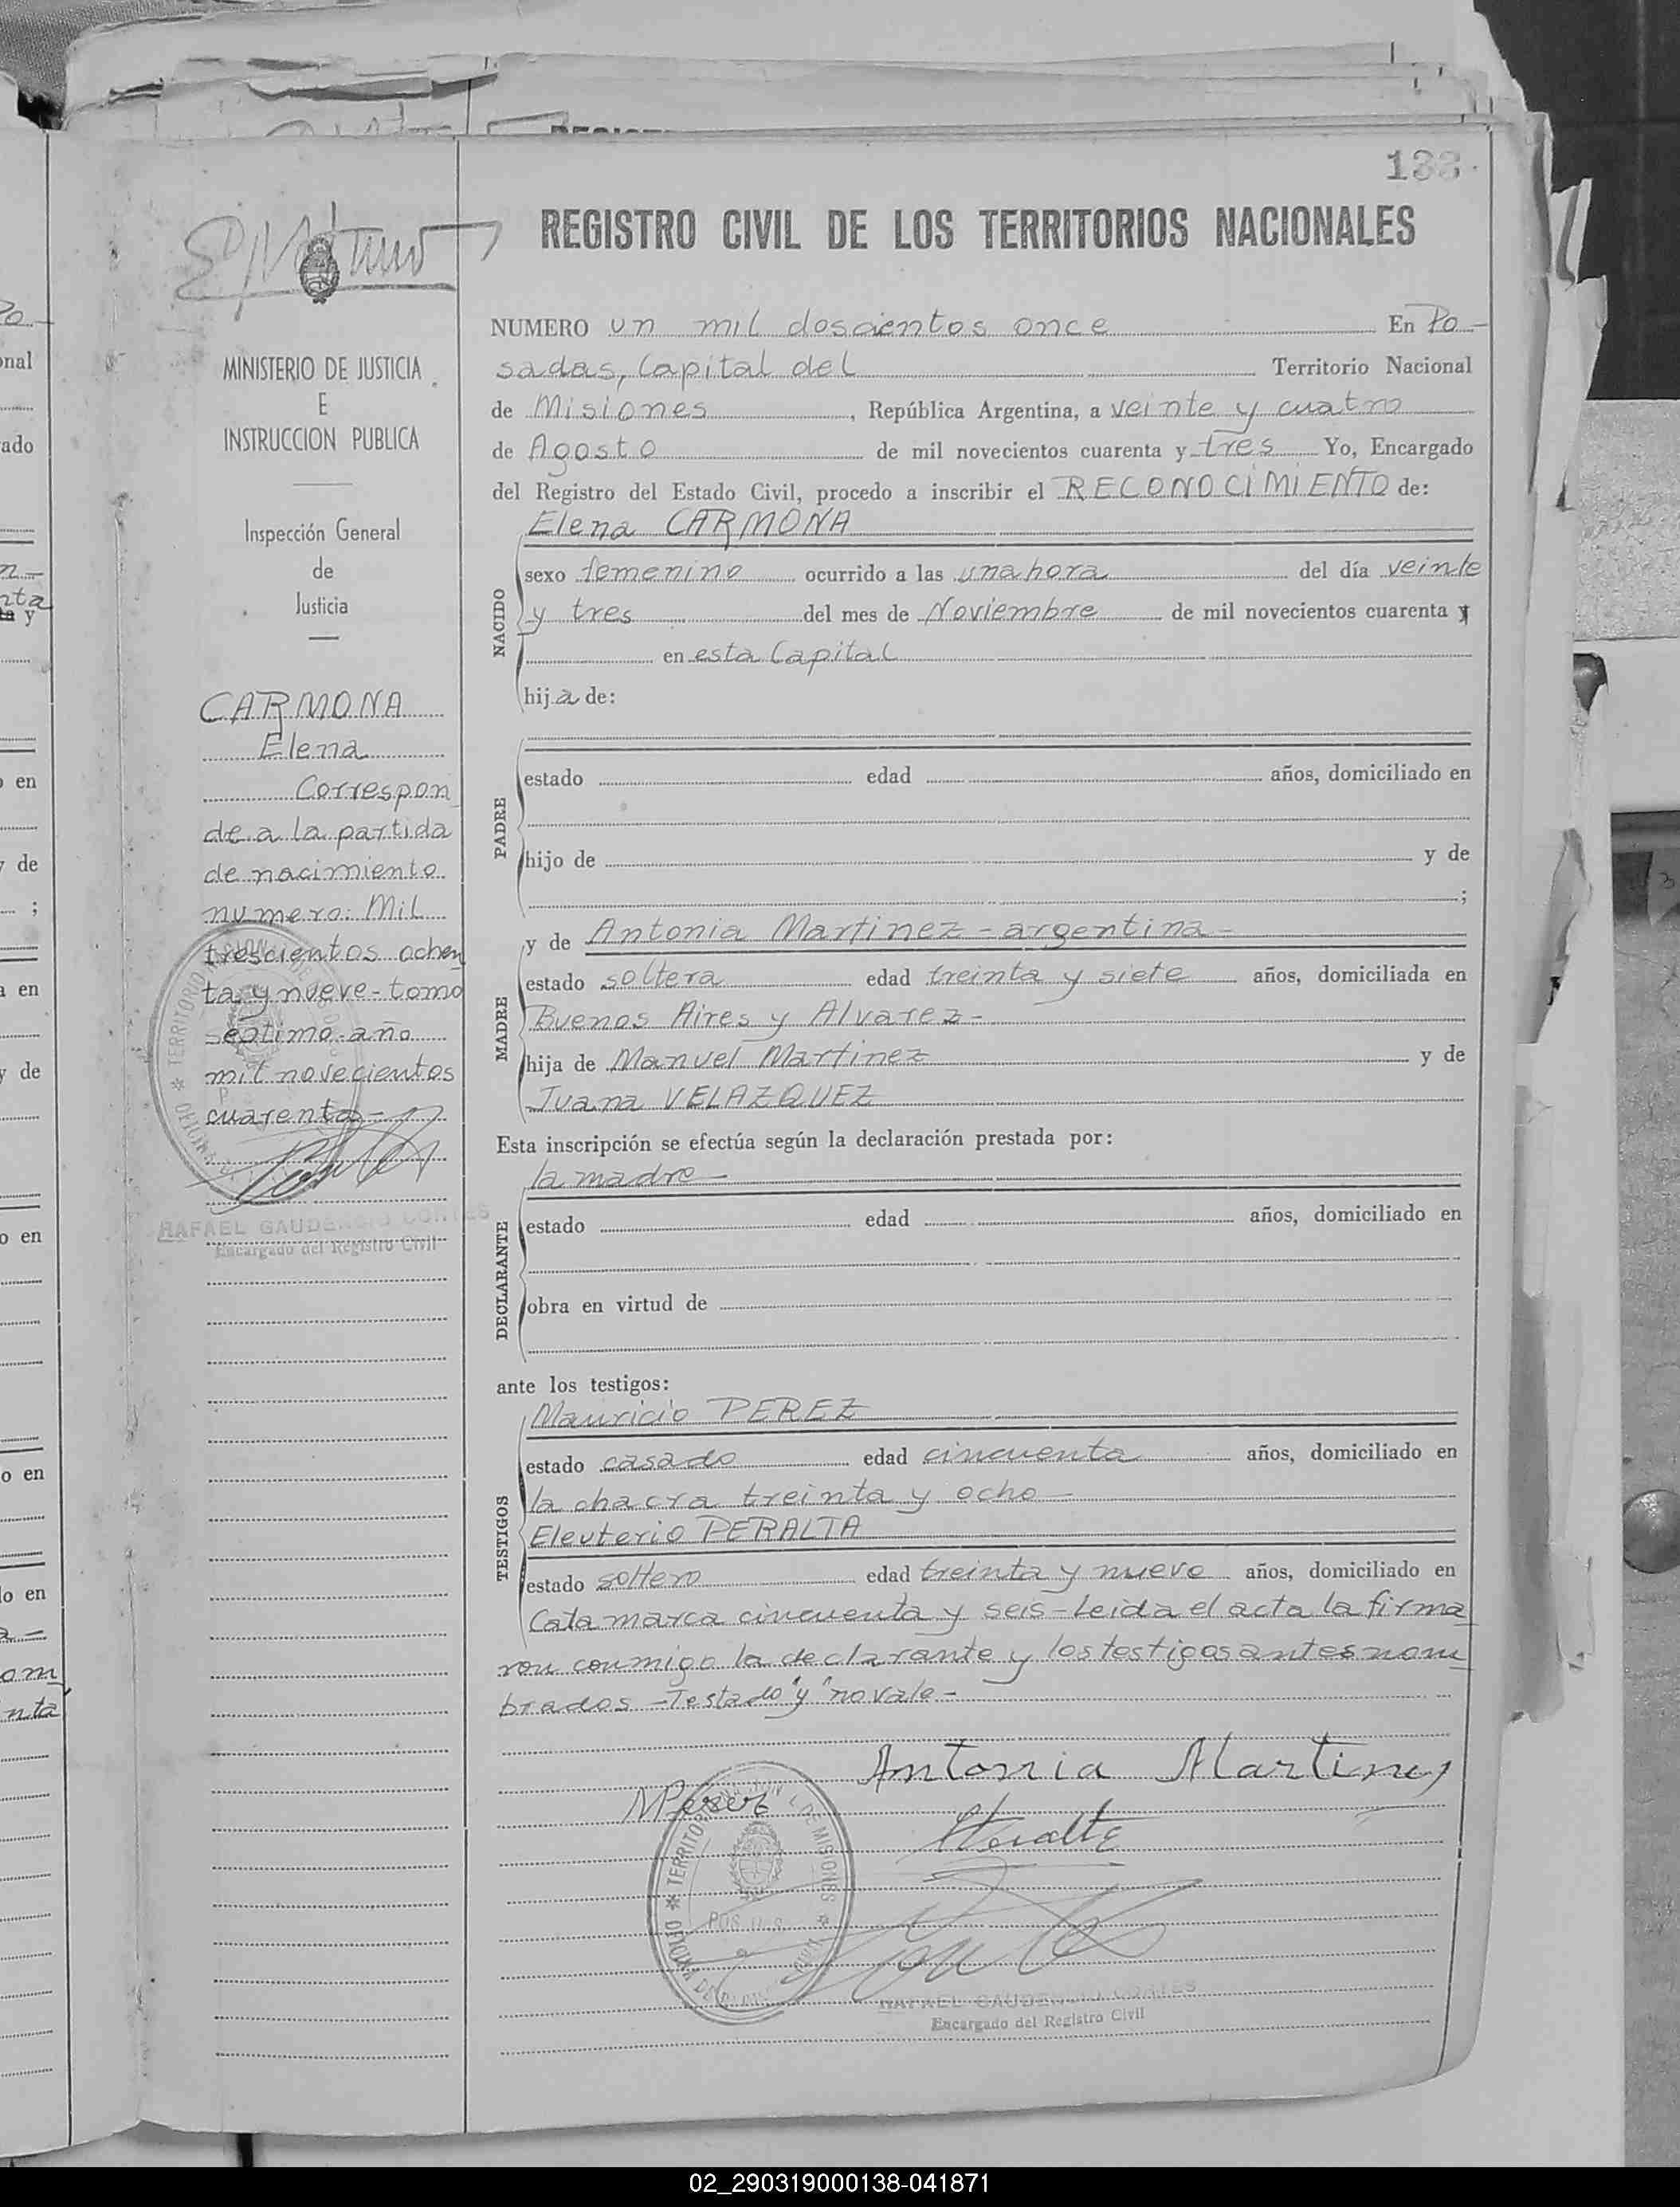 133
REGISTRO CIVIL DE LOS TERRITORIOS NACIONALES
MINISTERIO DE JUSTICIA
E
INSTRUCCION PUBLICA
Inspección General
de
Justicia
CARMONA
Elena
Correspon
de a la partida
de nacimiento
numero: Mil
trescientos ochen
ta y nueve - tomo
septimo año
mil novecientos
cuarenta -
RAFAEL GAUDENCIO CORTES
Encargado del Registro Civil
NUMERO un mil doscientos once En Po-
sadas, Capital del Territorio Nacional
de Misiones, República Argentina, a veinte y cuatro
de Agosto de mil novecientos cuarenta y tres Yo, Encargado
del Registro del Estado Civil, procedo a inscribir el RECONOCIMIENTO de:
NACIDO
Elena CARMONA
sexo femenino ocurrido a las una hora del día veinte
y tres del mes de Noviembre de mil novecientos cuarenta y
en esta Capital
hija de:
PADRE
estado edad años, domiciliado en
hijo de y de
;
MADRE
y de Antonia Martinez - argentina -
estado soltera edad treinta y siete años, domiciliada en
Buenos Aires y Alvarez -
hija de Manuel Martinez y de
Juana VELAZQUEZ
Esta inscripción se efectúa según la declaración prestada por:
DECLARANTE
la madre -
estado edad años, domiciliado en
obra en virtud de
ante los testigos:
TESTIGOS
Mauricio PEREZ
estado casado edad cincuenta años, domiciliado en
la chacra treinta y ocho -
Eleuterio PERALTA
estado soltero edad treinta y nueve años, domiciliado en
Catamarca cincuenta y seis - Leida el acta la firma
ron conmigo la declarante y los testigos antes nom
brados - Testado "y" no vale -
Antonia Martinez
MPerez
RAFAEL GAUDENCIO CORTES
Encargado del Registro Civil
02_290319000138-041871